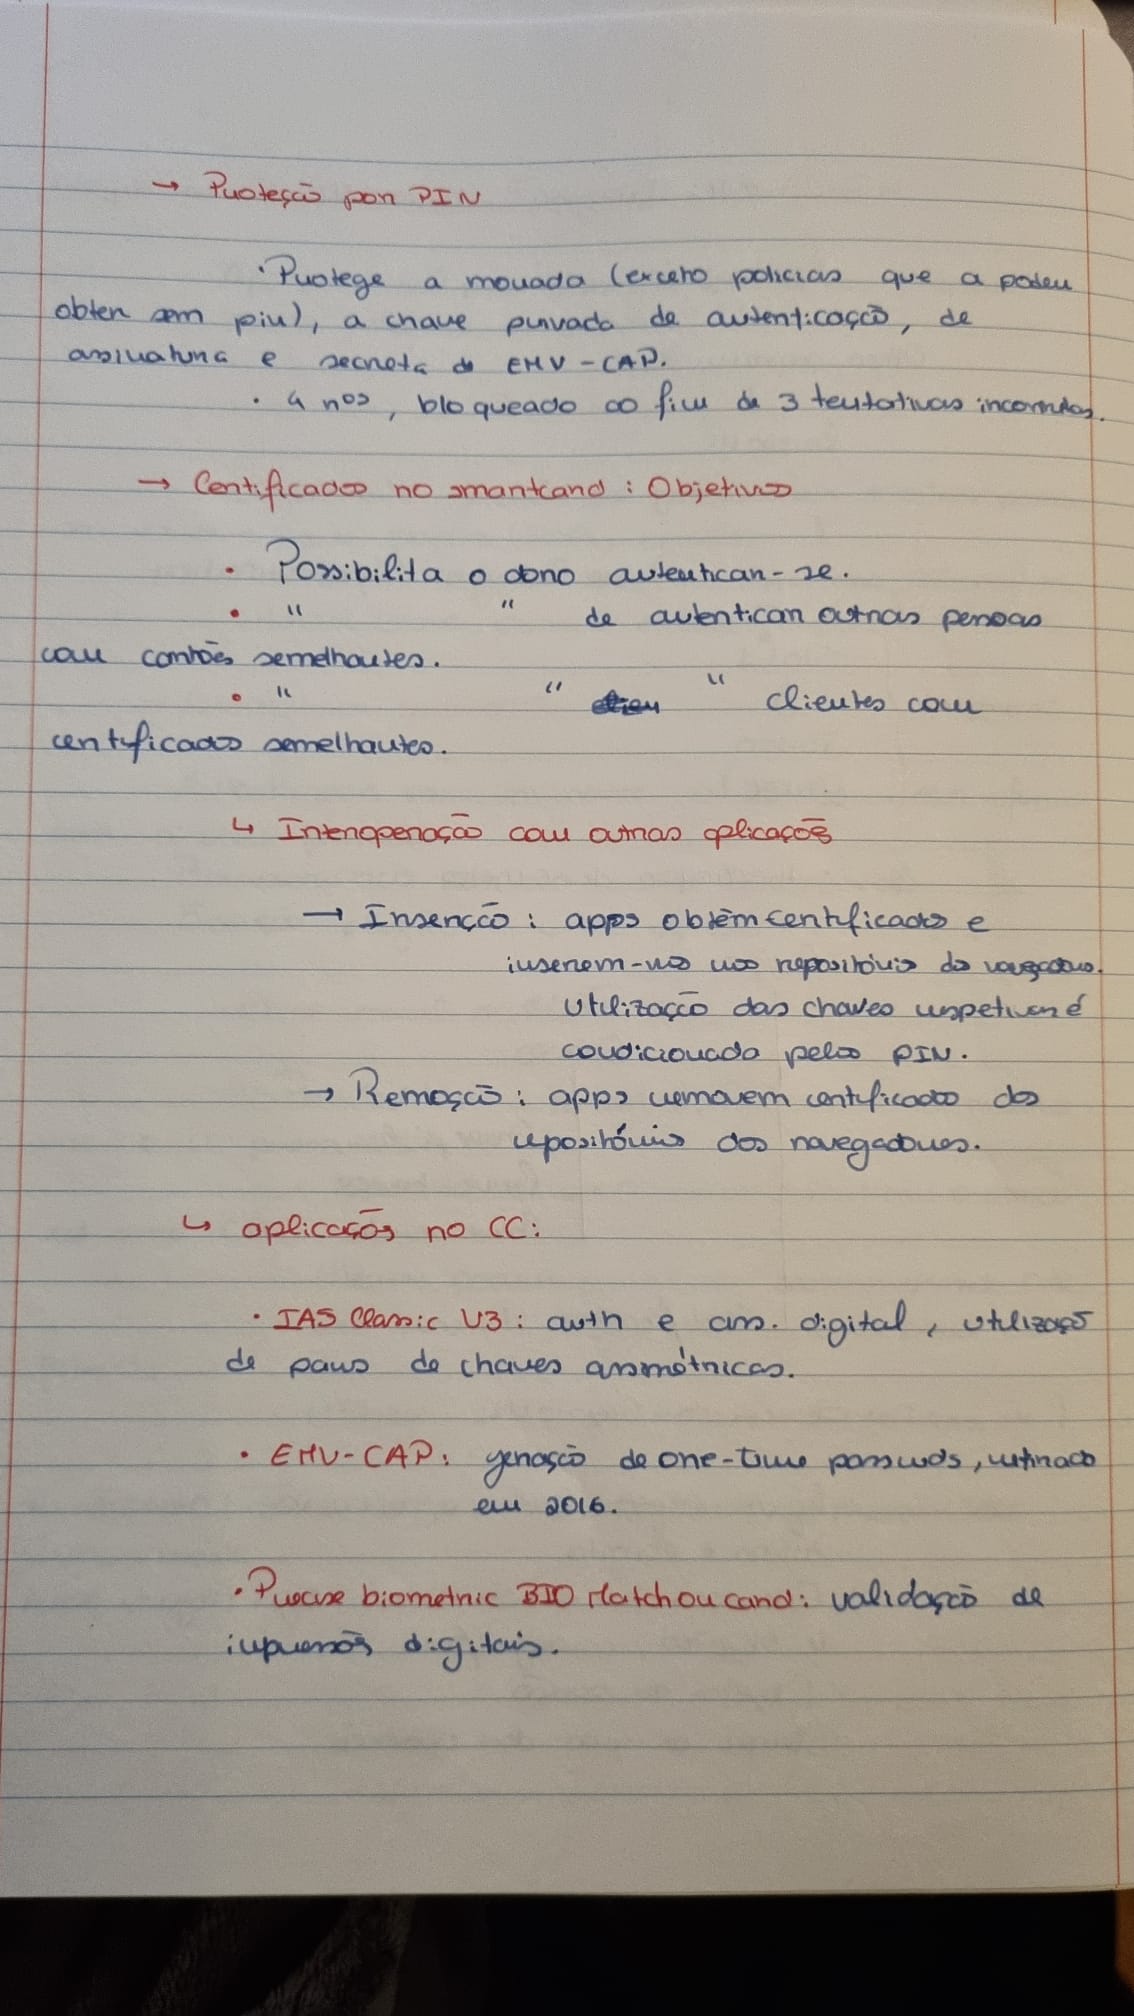 → Proteção por PIN
· Protege a morada (exceto policias que a podem
obter sem pin), a chave privada de autenticação, de
assinatura e secreta do EMV-CAP.
· 4 nos, bloqueado ao fim de 3 tentativas incorretas.
→ Certificados no smartcard : Objetivos
· Possibilita o dono autenticar-se.
· " " de autenticar outras pessoas
com cartões semelhantes.
· " " " clientes com
certificados semelhantes.
↳ Interoperação com outras aplicações
→ Inserção : apps obtêm certificados e
inserem-nos nos repositórios dos navegadores.
Utilização das chaves respetivas é
condicionada pelos PIN.
→ Remoção : apps removem certificados dos
repositórios dos navegadores.
↳ aplicações no CC:
· IAS Classic V3 : auth e ass. digital, utilização
de pares de chaves assimétricas.
· EMV-CAP: geração de one-time passwds, retirado
em 2016.
· Precise biometric BIO Match on card : validação de
impressões digitais.